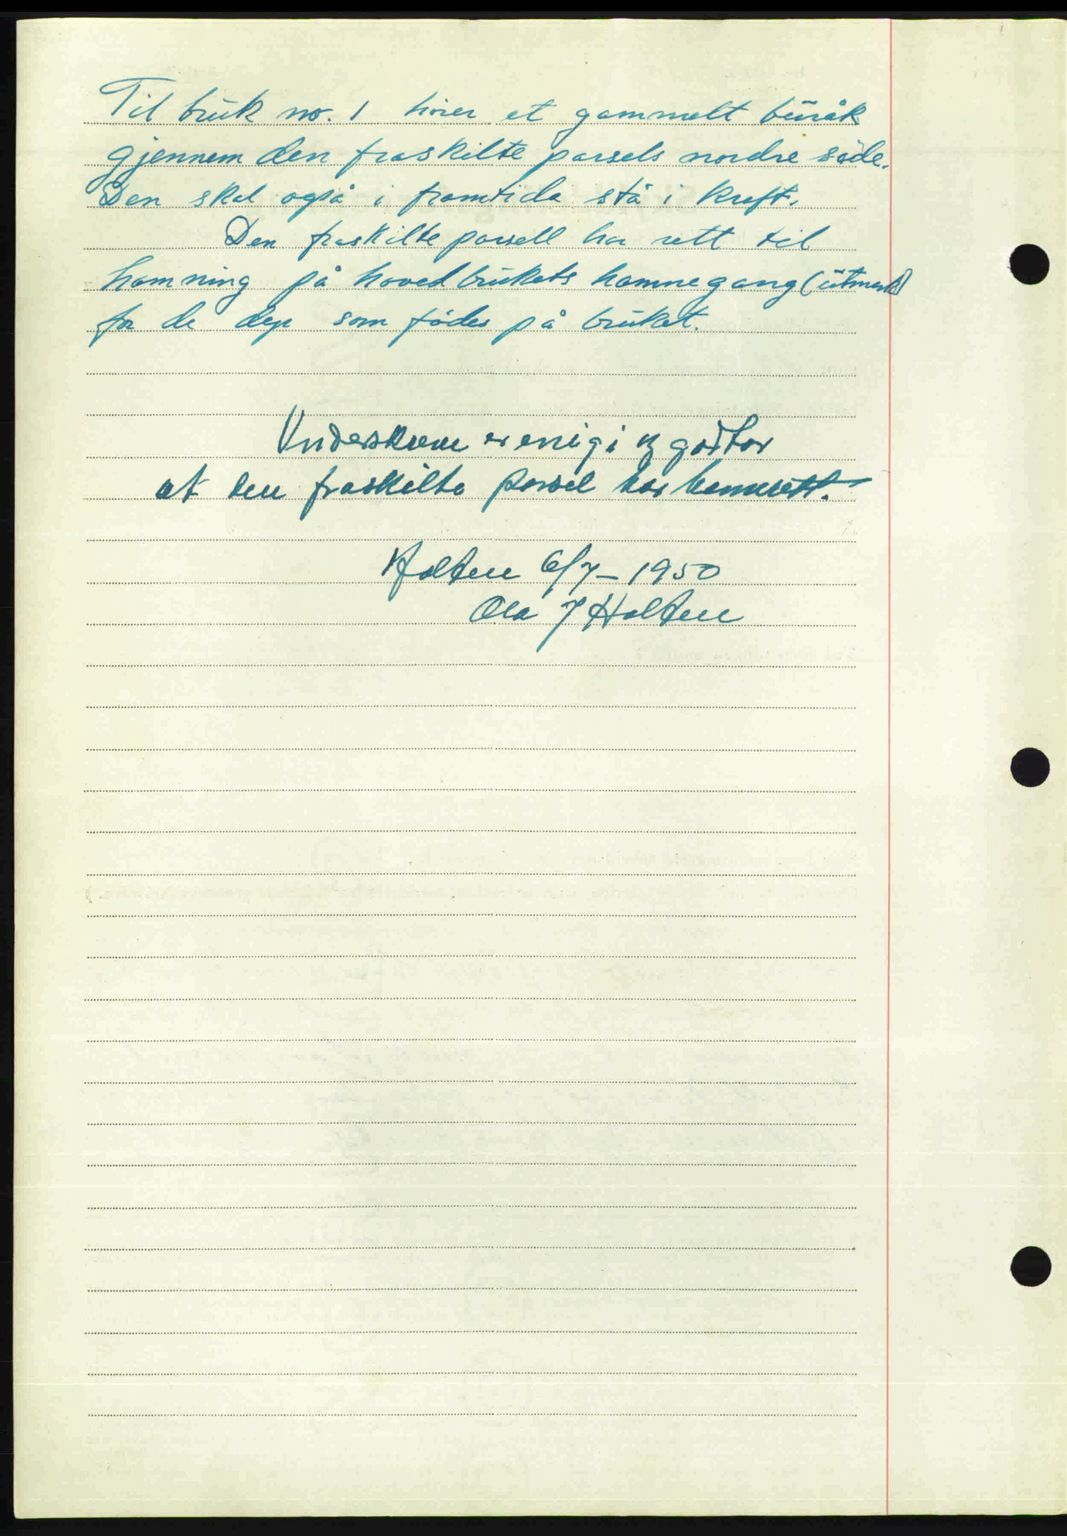 Til bruk no. 1 hører et gammelt buråk
gjennem den fraskilte parsels nordre side.
Den skal også i framtida stå i kraft.
Den fraskilte parsell har rett til
hamning på hovedbrukets hamnegang (utmark)
for de dyr som födes på bruket.
Underskreve er enig i og godtar
at den fraskilte parsel har hamnerett.
Holten 6/7 - 1950
Ola J Holten